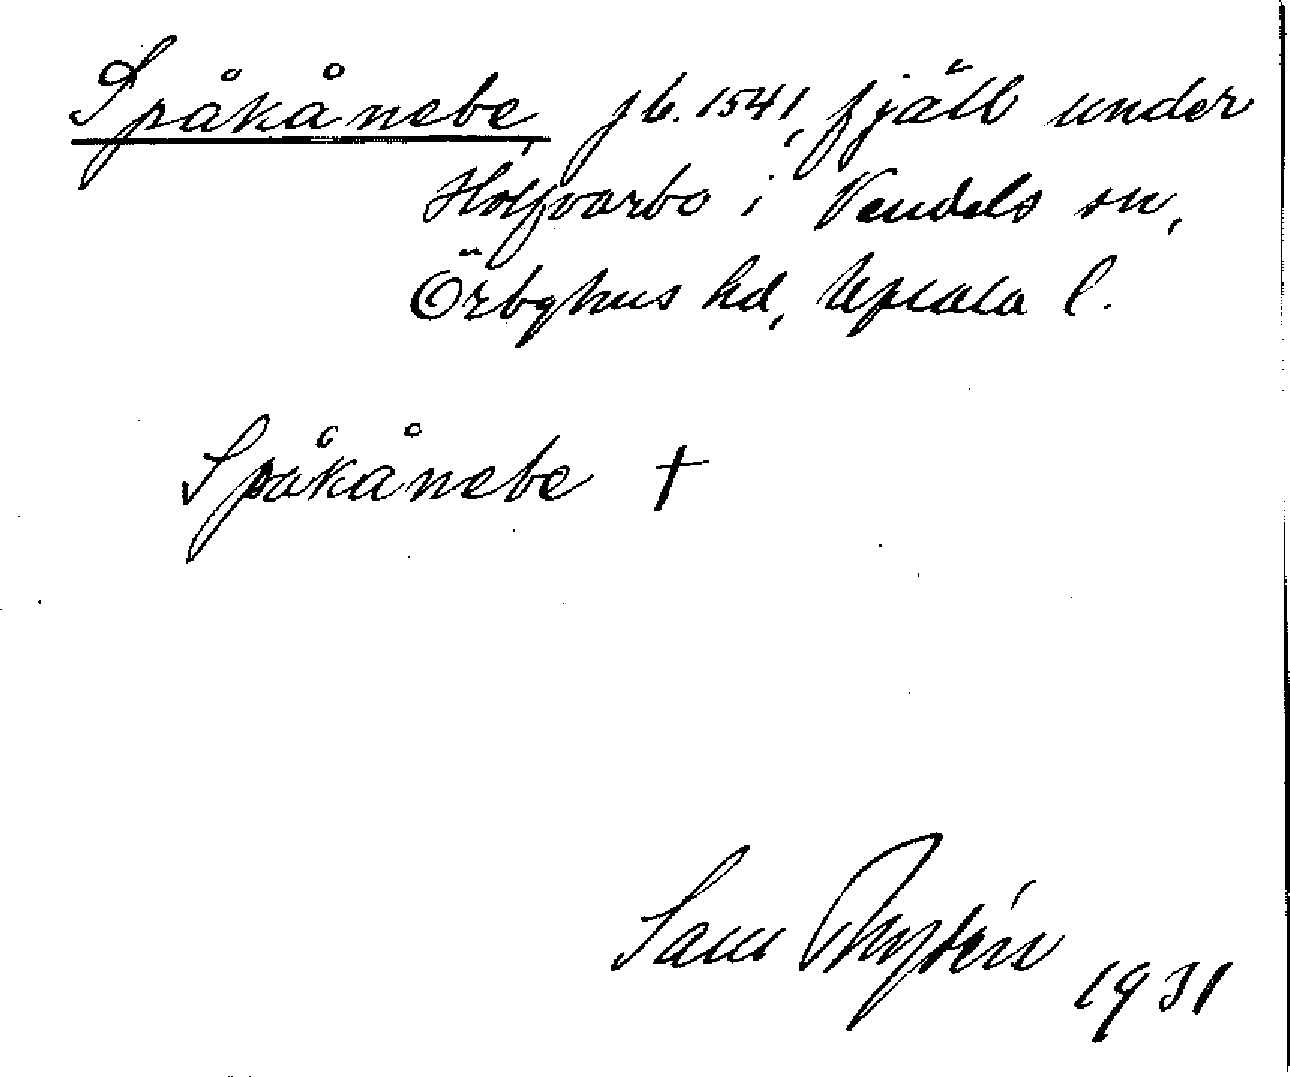 Spåkånebe jb. 1541, fjäll under
Holfvarbo i Vendels sn,
Örbyhus hd, Upsala l.
Spåkånebe †
Sam
1931